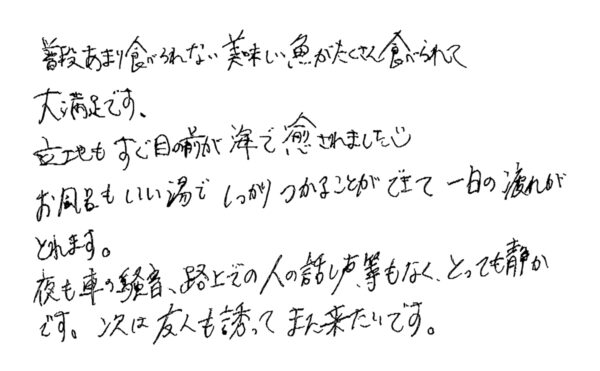 普段あまり食べられない美味しい魚がたくさん食べられて
大満足です、
立地もすぐ目の前が海で癒されました☺
お風呂もいい湯でしっかりつかることができて一日の疲れが
とれます。
夜も車の騒音、路上での人の話し声、等もなく、とっても静か
です。次は友人も誘ってまた来たいです。